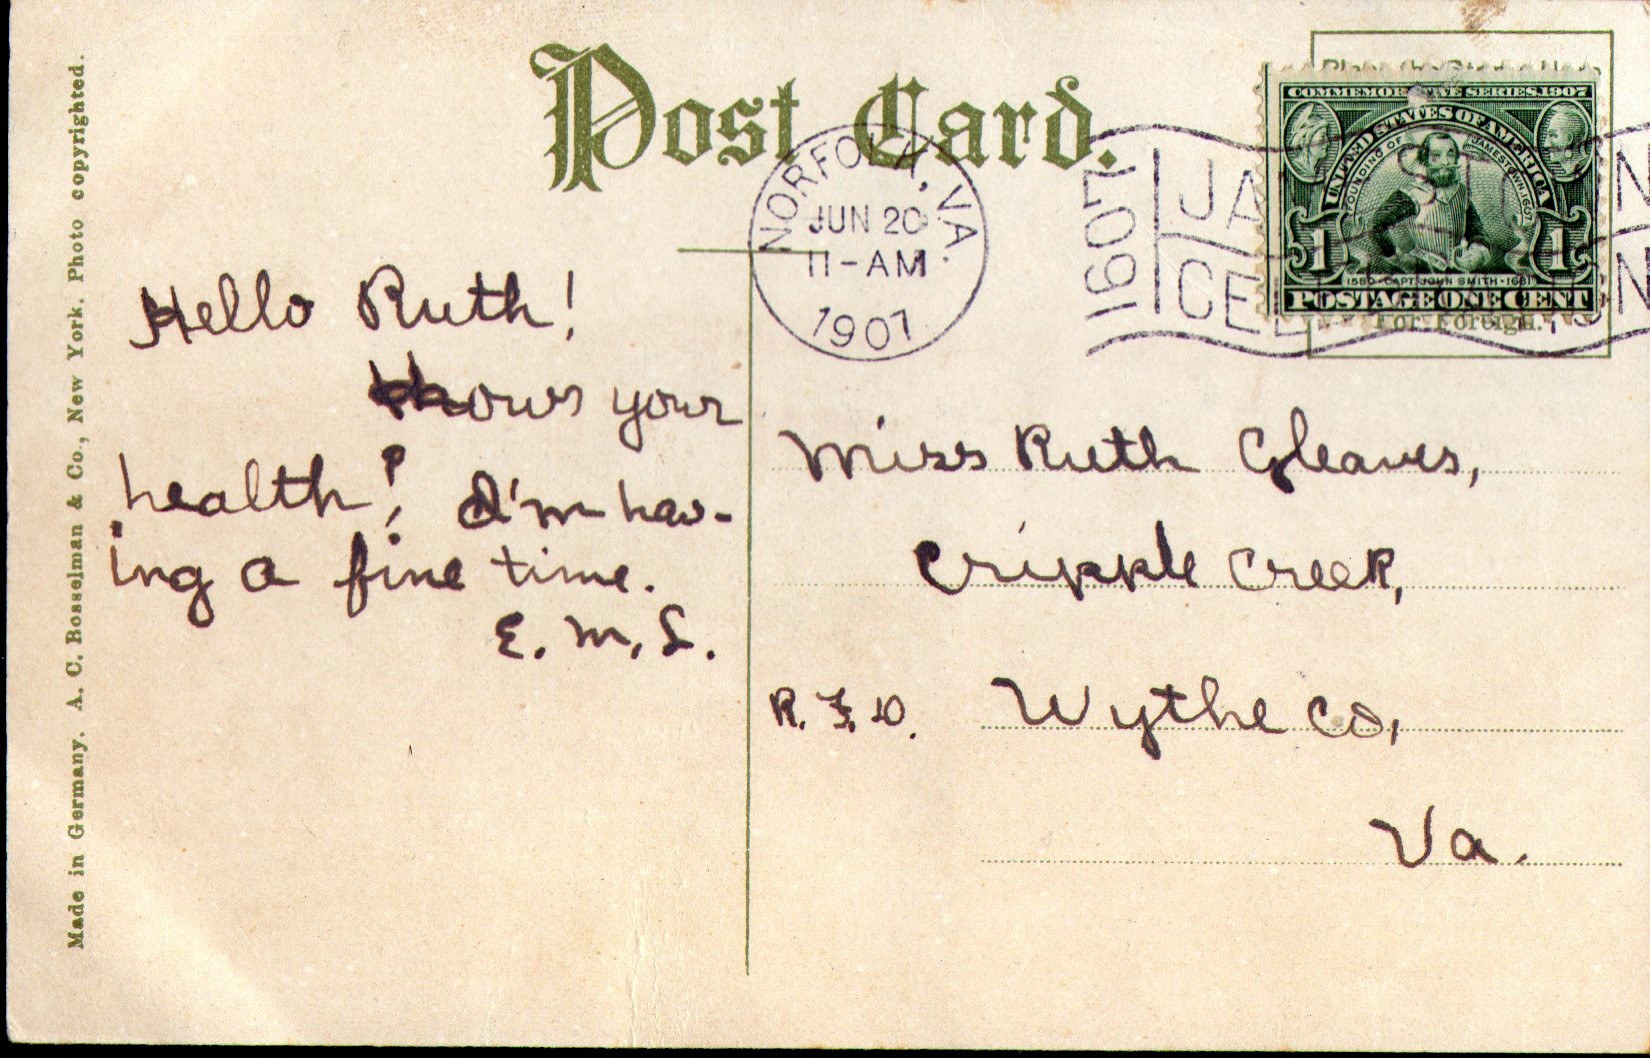 Post Card.
Made in Germany. A. C. Bosselman & Co., New York. Photo copyrighted.
NORFOLK, VA.
JUN 20
11-AM
1907
1607
JA
N
CE
N
COMMEMORATIVE SERIES 1907
UNITED STATES OF AMERICA
FOUNDING OF JAMESTOWN 1607
1 1
1580 · CAPT JOHN SMITH · 1631
POSTAGE ONE CENT
For Foreign.
Hello Ruth!
hows your
health? I'm hav-
ing a fine time.
E. M. S.
Miss Ruth Gleaves,
Cripple Creek,
R. F. D. Wythe Co,
Va.